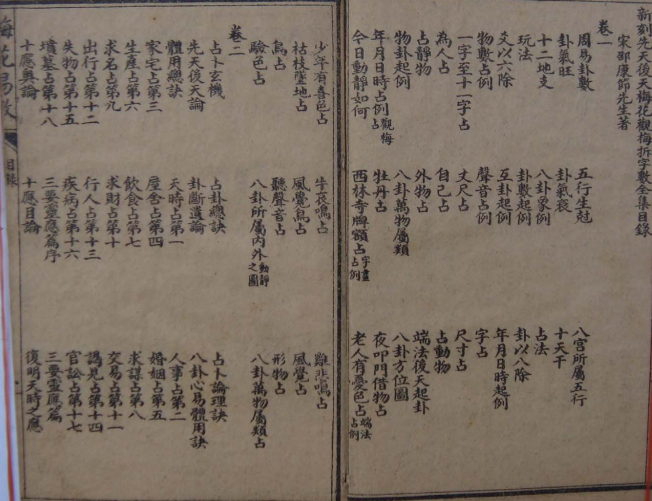 新刻先天後天梅花觀梅拆字數全集目錄
宋邵康節先生著
卷一
周易卦數 五行生尅 八宮所屬五行
卦氣旺 卦氣衰 十天干
十二地支 八卦象例 占法
玩法 卦數起例 卦以八除
爻以六除 互卦起例 年月日時起例
物數占例 聲音占例 字占
一字至十一字占 丈尺占 尺寸占
為人占 自己占 占動物
占靜物 外物占 端法後天起卦
物卦起例 八卦萬物屬類 八卦方位圖
年月日時占例觀梅占 牡丹占 夜叩門借物占
今日動靜如何 西林寺牌額占字畫占例 老人有憂色占端法占例
少年有喜色占 牛夜鳴占 雞悲鳴占
枯枝墜地占 風覺鳥占 風覺占
鳥占 聽聲音占 形物占
驗色占 八卦所屬內外動靜之圖 八卦萬物屬類占
卷二
占卜玄機 占卦總訣 占卜論理訣
先天後天論 卦斷遺論 八卦心易體用訣
體用總訣 天時占第一 人事占第二
家宅占第三 屋舍占第四 婚姻占第五
生產占第六 飲食占第七 求謀占第八
求名占第九 求財占第十 交易占第十一
出行占第十二 行人占第十三 謁見占第十四
失物占第十五 疾病占第十六 官訟占第十七
墳墓占第十八 三要靈應篇序 三要靈應篇
十應奧論 十應目論 復明天時之應
梅花易數 目錄